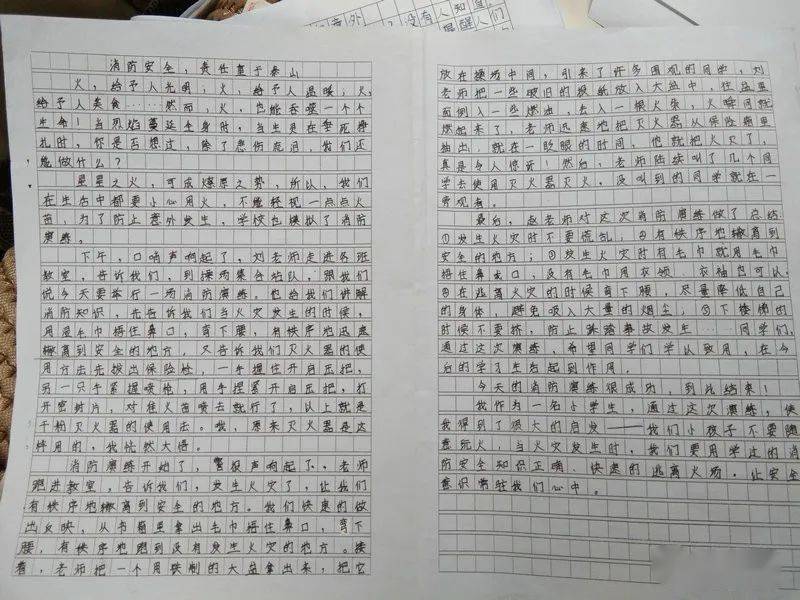 意外
没有人知道。
提醒人们
消防安全，责任重于泰山
火，给予人光明；火，给予人温暖；火，
给予人美食……然而，火，也能吞噬一个个
生命！当烈焰蔓延全身时，当生灵在垂死挣
扎时，你是否想过，除了悲伤流泪，我们还
能做什么？
星星之火，可成燎原之势，所以，我们
在生活中都要小心用火，不能轻视一点点火
苗，为了防止意外发生，学校也模拟了消防
演练。
下午，口哨声响起了，刘老师走进各班
教室，告诉我们，到操场集合站队，跟我们
说今天要举行一场消防演练。也给我们讲解
消防知识，先告诉我们当火灾发生的时候，
用湿毛巾捂住鼻口，弯下腰，有秩序地迅速
撤离到安全的地方，又告诉我们灭火器的使
用方法先拔出保险栓，一手握住开启压把，
另一只手紧握喷枪，用手捏紧开启压把，打
开密封片，对准火苗喷去就行了，以上就是
干粉灭火器的使用法。哦，原来灭火器是这
样用的，我恍然大悟。
消防演练开始了，警报声响起了、老师
跑进教室，告诉我们，发生火灾了，让我们
有秩序地撤离到安全的地方。我们快速的做
出反映，从书箱里拿出毛巾捂住鼻口，弯下
腰，有秩序地跑到没有发生火灾的地方。接
着，老师把一个用铁制的大盆拿出来，把它
放在操场中间，引来了许多围观的同学，刘
老师把一些破旧的报纸放入大盆中，往盆里
面倒入一些燃油，丢入一根火柴，火瞬间就
燃起来了，老师迅速地把灭火器从保险箱里
抽出，就在一眨眼的时间，他就把火灭了，
真是令人惊讶！然后，老师陆续叫了几个同
学去使用灭火器灭火，没叫到的同学就在一
旁观看。
最后，赵老师对这次消防演练做了总结
①发生火灾时不要慌乱；②有秩序地撤离到
安全的地方；③发生火灾时有毛巾就用毛巾
捂住鼻或口，没有毛巾用衣领、衣袖也可以，
④在逃离火灾的时候弯下腰，尽量降低自己
的身体，避免吸入大量的烟尘；⑤下楼梯的
时候不要挤，防止事故发生……同学们，
通过这次演练，希望同学们学认致用，在今
后的学习生活起到作用。
今天的消防演练很成功，到此结束！
我作为一名小学生，通过这次演练，使
我得到了很大的启发——我们小孩子不要随
意玩火，当火灾发生时，我们要用学过的消
防安全知识正确、快速的逃离火场。让安全
意识常驻我们心中。